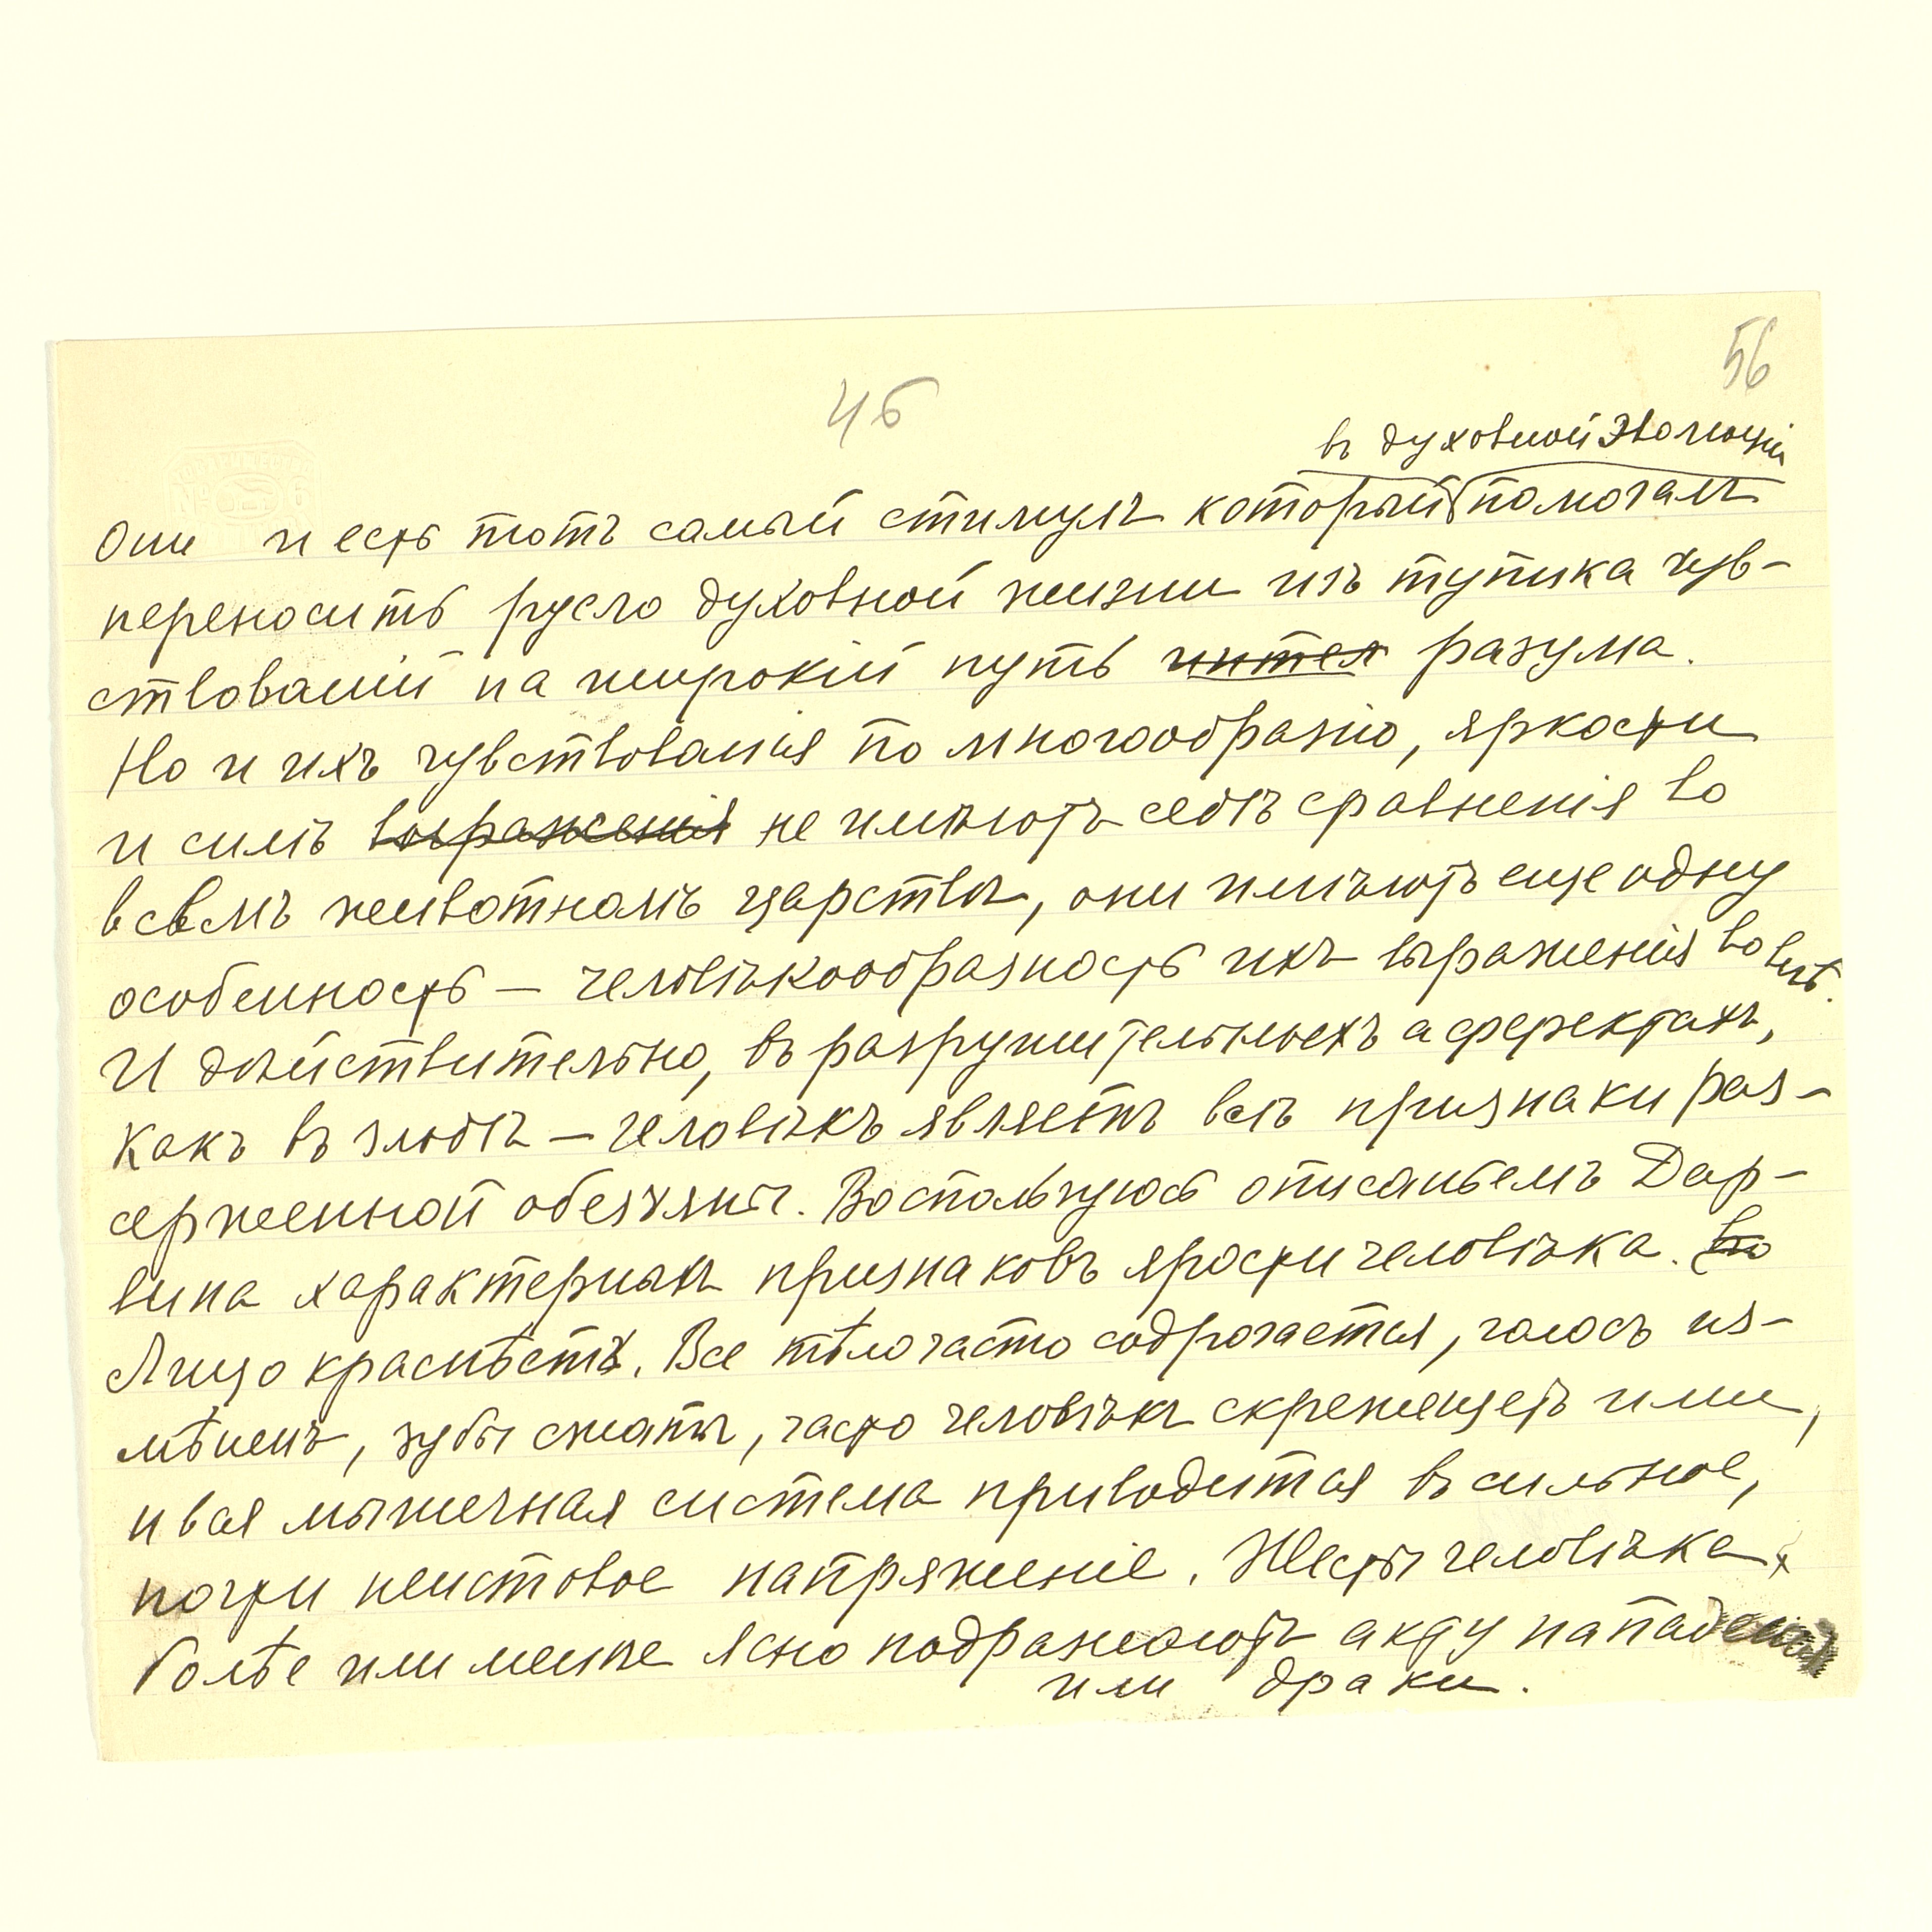 56
46
въ духовной эволюціи
Они и есть тотъ самый стимулъ который помогалъ
переносить русло духовной жизни изъ тупика чув-
ствованій на широкій путь интел разума.
Но и ихъ чувствованія по многообразію, яркости
и силѣ выраженія не имѣютъ себѣ сравненія во
всемъ животномъ царствѣ, они имѣютъ еще одну
особенность – человѣкообразность ихъ выраженія во внѣ.
И дѣйствительно, въ разрушительныхъ аффектахъ,
какъ въ злобѣ – человѣкъ являетъ всѣ признаки раз-
серженной обезьяны. Воспользуюсь описаньемъ Дар-
вина характерныхъ признаковъ ярости человѣка. Во
Лицо краснѣетъ. Все тѣло часто содрогается, голосъ из-
мѣненъ, зубы сжаты, часто человѣкъ скрежещетъ ими,
и вся мышечная система приводится въ сильное,
почти неистовое напряженіе. Жесты человѣка
болѣе или менѣе ясно подражаютъ акту нападенія
или драки.